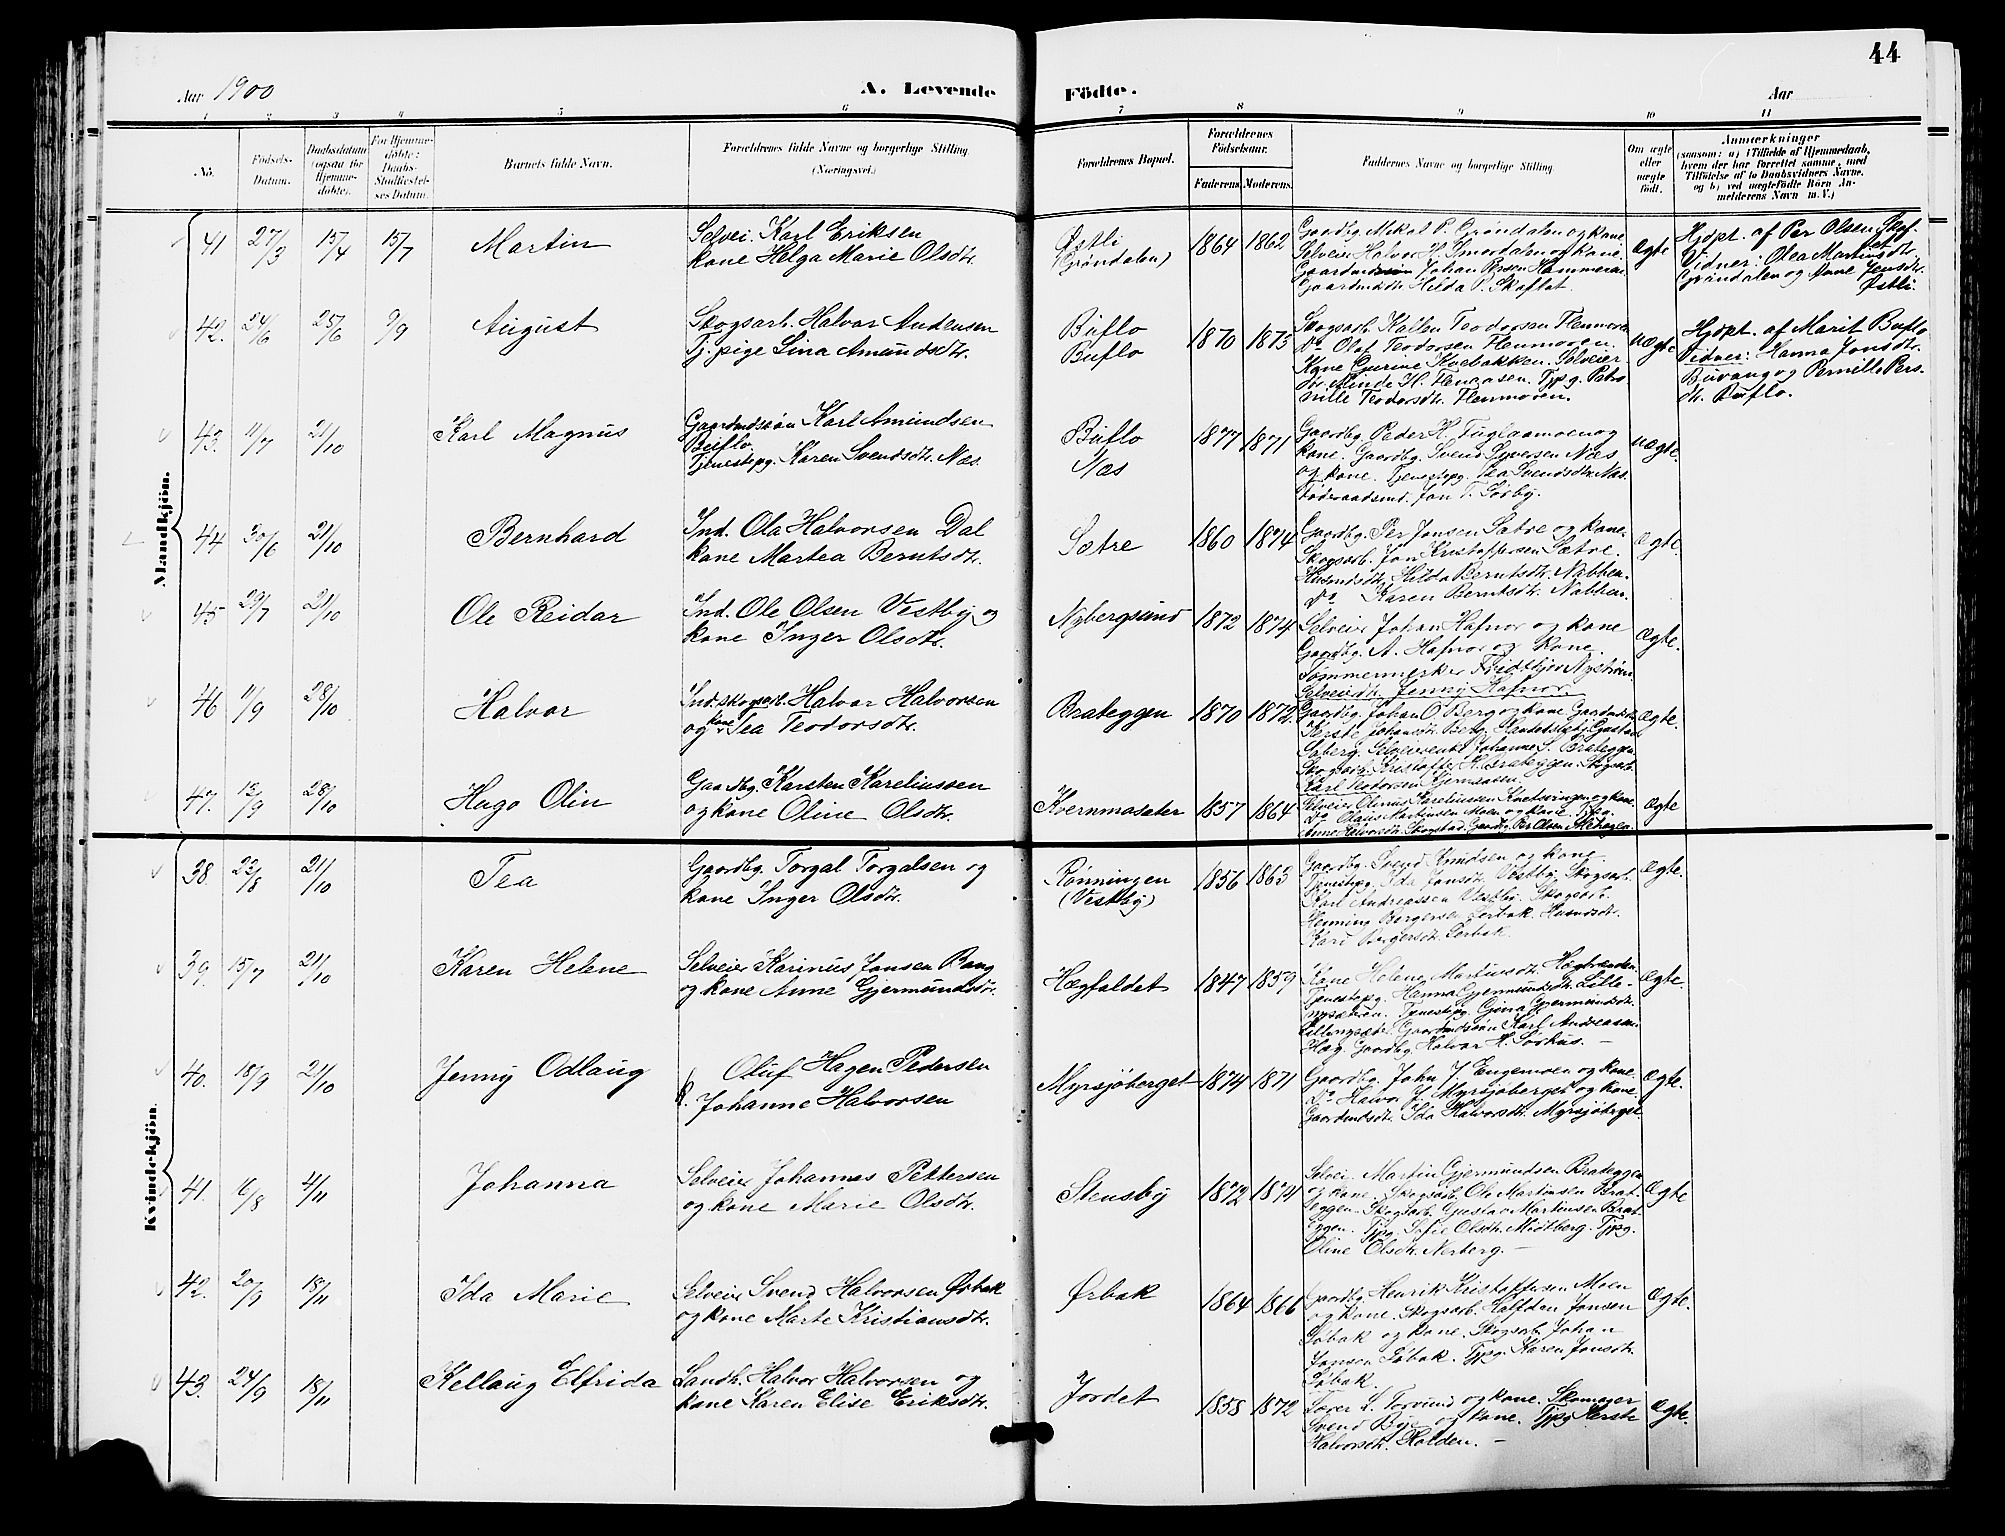 44
Aar 1900
A. Levende
Födte.
Aar
1 2 3 4 5 6
7 8 9 10 11
No.
Födsels-
Datum.
Daabsdatum
(ogsaa for
Hjemme-
döbte).
For Hjemme-
döbte:
Daabs-
Stadfæstel-
ses Datum.
Barnets fulde Navn.
Forældrenes fulde Navne og borgerlige Stilling
(Næringsvei.)
Forældrenes Bopæl.
Forældrenes
Födselsaar.
Faderens. Moderens.
Faddernes Navne og borgerlige Stilling.
Om ægte
eller
uægte
født.
Anmærkninger
(saasom: a) i Tilfælde af Hjemmedaab,
hvem der har forrettet samme, med
Tilföielse af to Daabsvidners Navne,
og b) ved uægtefödte Börn An-
melderens Navn m. V.)
Mandkjön.
41 27/3 15/4 15/7 Martin
Selvei. Karl Eriksen
kone Helga Marie Olsdtr.
Østli
(Grøndalen)
1864 1862
Gaardbg. Mikal P. Grøndalen og kone
Selveier Halvor H. Smordalen og kone.
Gaardmd. Johan Persen Hammeren
Gaardmdsdtr. Hilda P. Skaflat.
ægte
Hjdpt. af Per Olsen
Vidner: Olea Martinsdtr.
Grøndalen og Anne Jensdtr.
Østli.
42. 24/6 25/6 9/9 August
Skogsarb. Halvor Andensen
Tj. pige Lina Amundsdtr.
Buflo
Buflo
1870 1873
Skogsarb. Kallen Teodorsen Flenmoen
Do Olaf Teodorsen Flenmoen.
Kone Gurine Kvebakken. Selveier
dtr. Minde H. Flenaasen. Tjpg. Petro
nille Teodorsdtr. Flenmoen.
uægte
Hjdpt. af Marit Buflo
Vidner: Hanna Jonsdtr.
Buvang og Pernille Pers-
dtr. Buflo.
43. 11/7 21/10 Karl Magnus
Gaardmdssøn Karl Amundsen
Buflo.
Tjenestepg. Karen Svendsdtr. Næs.
Buflo
Næs
1877 1871
Gaardbg. Peder H. Fuglaamoen og
kone. Gaardbg. Svend Syversen Næs
og kone. Tjenestepg. Tea Svendsdtr. Næs.
Føderaadsmd. Jon T. Sørby.
uægte.
44 30/6 21/10 Bernhard
Ind. Ola Halvorsen Dal
kone Martea Berntsdtr.
Sætre
1860 1874
Gaardbg. Per Jonsen Sætre og kone.
Skogsarb. Jon Kristoffersen Sætre.
Husmdsdtr. Hilda Berntsdtr. Nabben.
Do Karen Berntsdtr. Nabben.
ægte.
45 29/7 21/10 Ole Reidar
Ind. Ole Olsen Vestby og
kone Inger Olsdtr.
Nybergsund
1872 1874
Selveier Johan Hafnor og kone
Gaardbg. A. Hafnor og kone.
Tømmermerker Fridthjov Nystrøm.
Selveierdtr. Jenny Hafnor.
ægte.
46 11/9 28/10 Halvor
Ind. skogsarb. Halvor Halvorsen
og kone Tea Teodorsdtr.
Brateggen
1870 1872
Gaardbg. Johan O. Berg og kone Gaardmdsdtr.
Kerste Johansdtr. Berg. Handelsbetj. Gustav
Saberg. Johanne S. Brateggen.
Skogsarb. Kristoffer H. Brateggen. Skogsarb.
Karl Teodorsen
ægte.
47. 12/9 28/10 Hugo Olin
Gaardbg. Karsten Kareliussen
og kone Oline Olsdtr.
Kvernmosæter
1857 1864
Selveier Olinus Kareliussen og kone.
Do Olaus Martinsen Moen og kone. Tjpg.
Anne Halvorsdtr. Skogstad. Gaardbg. Per Olsen
ægte
Kvindekjön.
38. 22/8 21/10 Tea
Gaardbg. Torgal Torgalsen og
kone Inger Olsdtr.
Rønningen
(Vestby)
1856 1863
Gaardbg. Svend Knudsen og kone
Tjenestepg. Ida Jonsdtr. Vestby. Skogsarb.
Karl Andreassen Vestby. Skogsarb.
Henning Borgersen Lørbak. Husmdsdtr.
Kari Borgersdtr. Lørbak.
ægte.
39. 15/7 21/10 Karen Helene
Selveier Karinus Jonsen Bang
og kone Anne Gjermundsdtr.
Hægfaldet
1847 1859
Kone Helene Martinsdtr. Høgbrænden.
Tjenestepg. Hanna Gjermundsdtr. Lille-
Tjenestepg. Gina Gjermundsdtr.
Gaardmdssøn Karl Andreasen
Hæg. Gaardbg. Halvor H. Sørhus. —
ægte.
40. 18/9 21/10 Jenny Odlaug
Oluf Hagen Pedersen
Johanne Halvorsen
Myrsjøberget
1874 1871
Gaardbg. John J. Engemoen og kone.
Do Halvor J. Myrsjøberget og kone
Gaardmdsdtr. Ida Halvorsdtr. Myrsjøberget.
ægte.
41. 16/8 4/11 Johanna
Selveier Johannes Pettersen
og kone Marie Olsdtr.
Stensby
1872 1874
Selvei. Martin Gjermundsen Brateggen
og kone. Skogsarb. Ole Martinsen Brat-
eggen. Skogsarb. Gustav Martinsen Brat
eggen. Tjpg. Sofie Olsdtr. Midtberg. Tjpg.
Oline Olsdtr. Nerberg. —
ægte
42. 20/9 18/11 Ida Marie
Selveier Svend Halvorsen Ørbak
og kone Marte Kristiansdtr.
Ørbak
1864 1866
Gaardbg. Henrik Kristoffersen Moen
og kone. Skogsarb. Halfdan Jonsen
Søbak og kone. Skogsarb. Johan
Jonsen Søbak. Tjpg. Karen Jonsdtr.
Søbak.
ægte.
43. 24/9 18/11 Kellaug Elfrida
Landh. Halvor Halvorsen og
kone Karen Elise Eriksdtr.
Jordet
1858 1872
Lærer L. Torvund og kone. Skomager
Svend Bye og kone. Tjpg. Kerste
Halvorsdtr. Kolden. —
ægte.